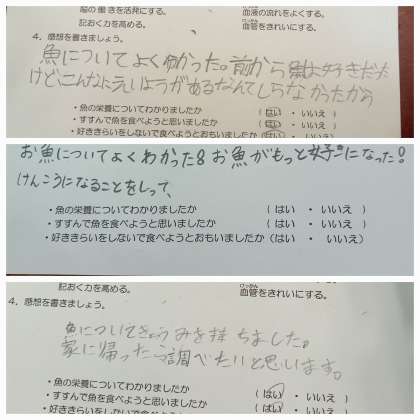 脳の働きを活発にする。
血液の流れをよくする。
記おく力を高める。
血管をきれいにする。
4. 感想を書きましょう。
魚についてよくわかった。前から魚は好きだった
けど、こんなにえいようがあるなんてしらなかったから
・魚の栄養についてわかりましたか (はい ・ いいえ )
・すすんで魚を食べようと思いましたか (はい ・ いいえ )
・好ききらいをしないで食べようとおもいましたか (はい ・ いいえ)
お魚についてよくわかった。お魚がもっと好きになった!
けんこうになることをしって、
・魚の栄養についてわかりましたか ( はい ・ いいえ )
・すすんで魚を食べようと思いましたか ( はい ・ いいえ )
・好ききらいをしないで食べようとおもいましたか (はい ・ いいえ)
記おく力を高める。
けっかん
血管をきれいにする。
4. 感想を書きましょう。
魚についてきょうみを持ちました。
家に帰ったら調べたいと思います。
・魚の栄養についてわかりましたか (はい ・ いいえ )
・すすんで魚を食べようと思いましたか (はい ・ いいえ )
・好ききらいをしないで食べようとおもいましたか